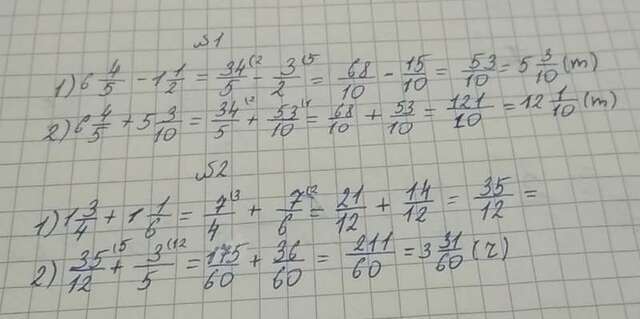 №1
1) 6 4/5 - 1 1/2 = 34/5 (2 - 3/2 (5 = 68/10 - 15/10 = 53/10 = 5 3/10 (т)
2) 6 4/5 + 5 3/10 = 34/5 (2 + 53/10 (1 = 68/10 + 53/10 = 121/10 = 12 1/10 (т)
№2
1) 1 3/4 + 1 1/6 = 7/4 (3 + 7/6 (2 = 21/12 + 14/12 = 35/12 =
2) 35/12 (5 + 3/5 (12 = 175/60 + 36/60 = 211/60 = 3 31/60 (ч)